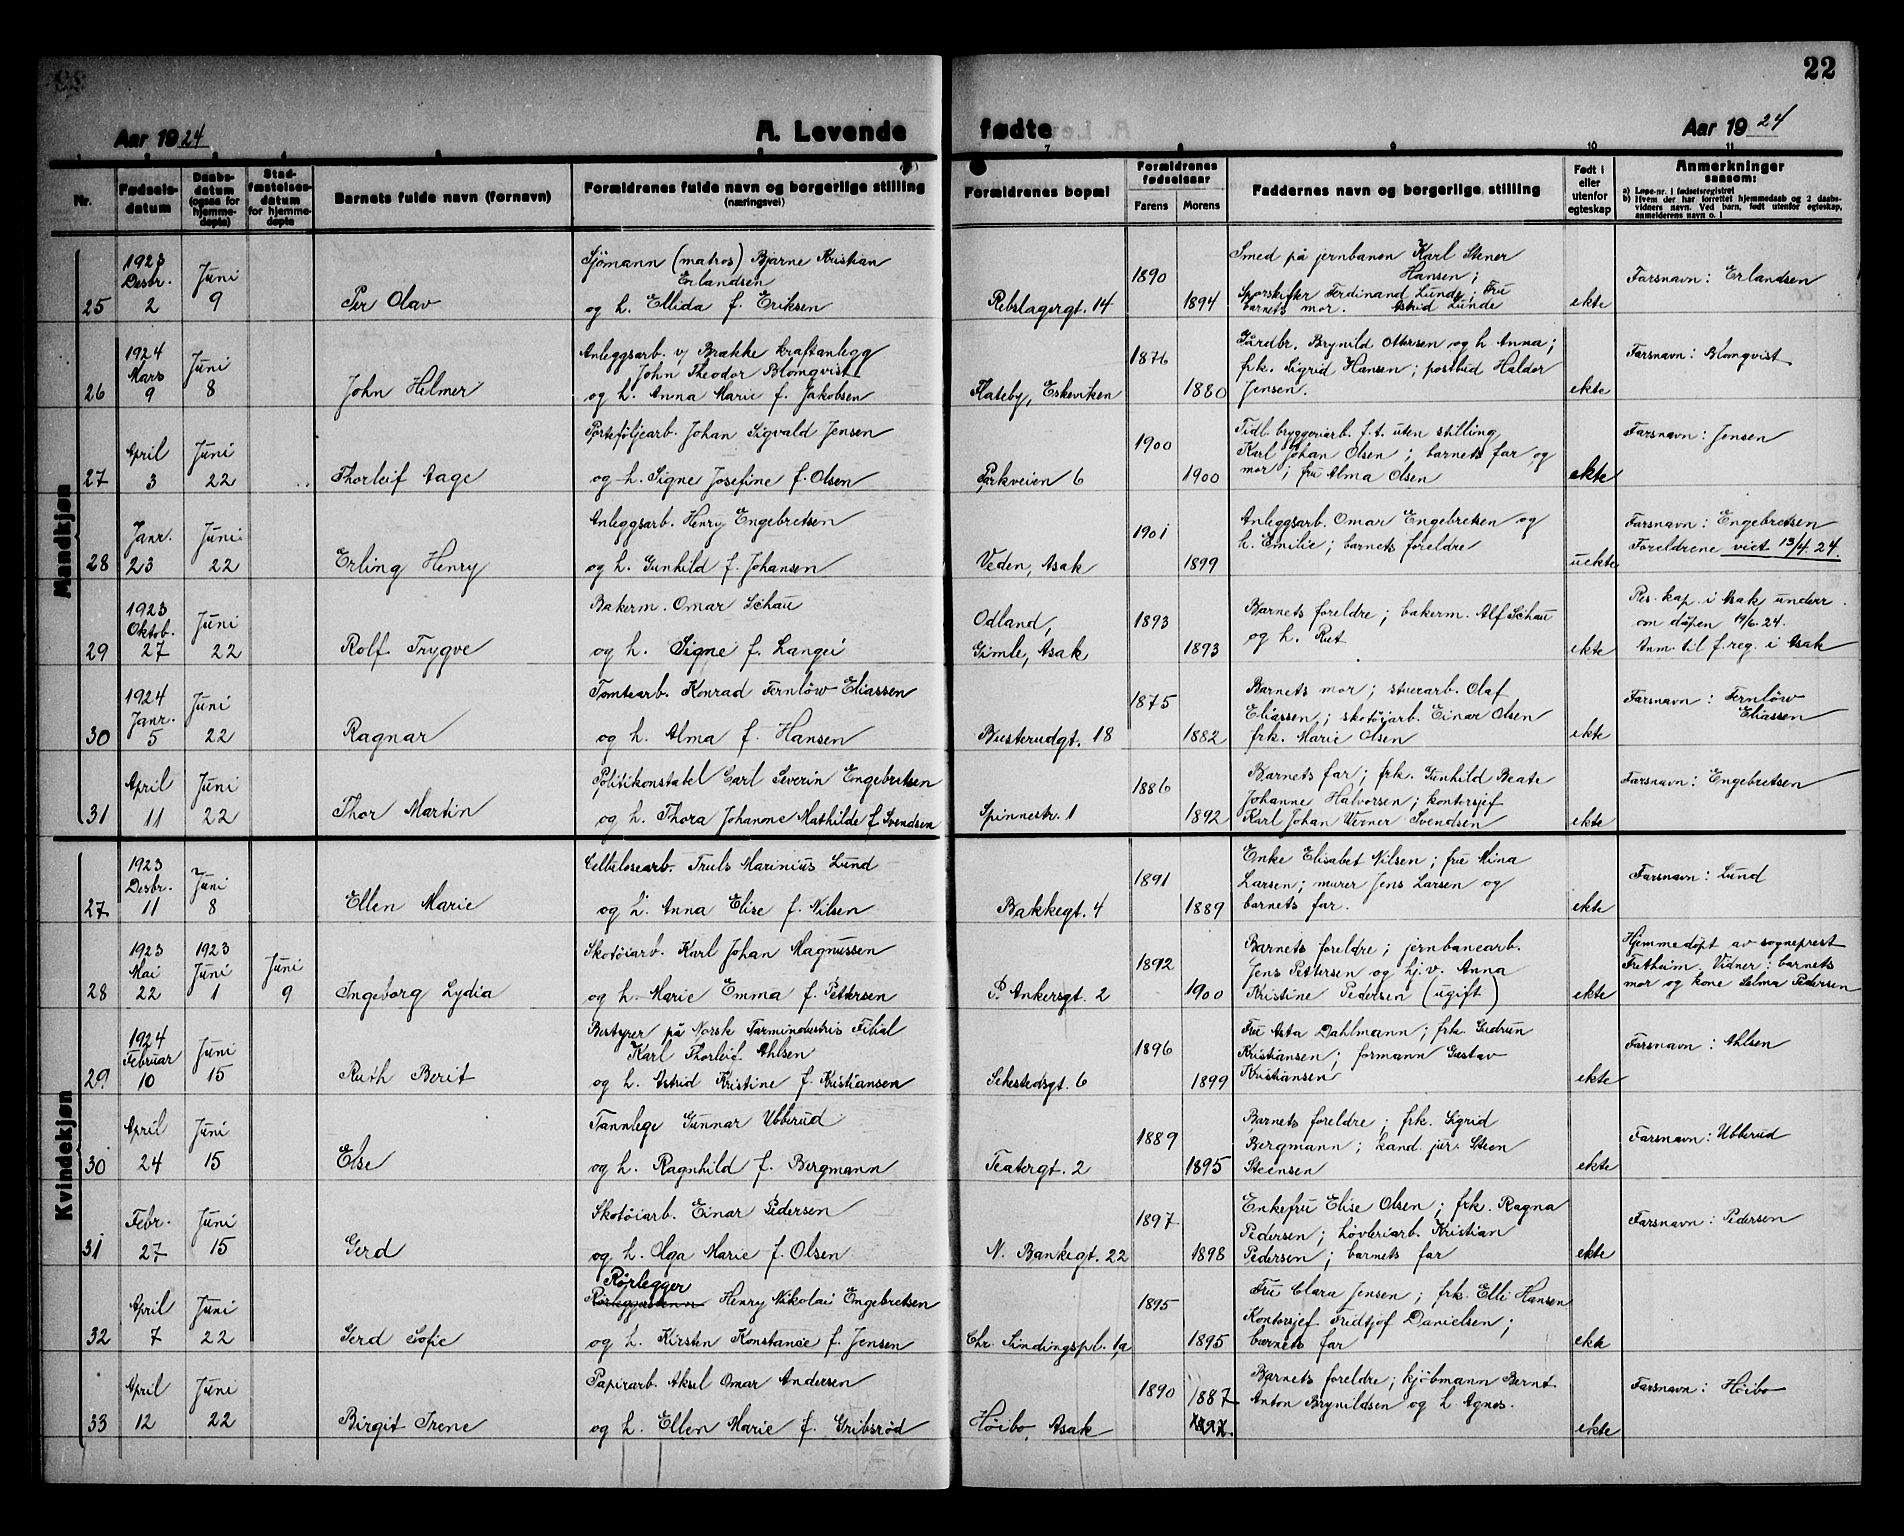 22
Aar 1924
A. Levende
fødte
Aar 1924
Nr.
Fødsels-
datum
Daabs-
datum
(ogsaa for
hjemme-
døpte)
Stad-
fæstelses-
datum
for hjemme-
døpte
Barnets fulde navn (fornavn)
Forældrenes fulde navn og borgerlige stilling
(næringsvei)
7
8
9
10
11
Forældrenes bopæl
Forældrenes
fødselsaar
Farens
Morens
Faddernes navn og borgerlige stilling
Født i
eller
utenfor
egteskap
Anmerkninger
saasom:
a) Løpe-nr. i fødselsregistret
b) Hvem der har forrettet hjemmedaab og 2 daabs-
vidners navn. Ved barn, født utenfor egteskap,
anmelderens navn o. l.
Mandkjøn
25
1923
Desbr.
2
Juni
9
Per Olav
Sjömann (matros) Bjarne Kristian
Erlandsen
og h. Ellida f. Eriksen
Rebslagergt. 14
1890
1894
Smed på jernbanen Karl Stener
Hansen;
Ferdinand Lunde; Fru
barnets mor. Astrid Lunde
ekte
Farsnavn: Erlandsen
26
1924
Mars
9
Juni
8
John Hilmer
Anleggsarb. v/ Brække kraftanlegg
John Theodor Blomqvist
og h. Anna Marie f. Jakobsen
Flateby, Eskeviken
1876
1880
Gårdbr. Brynild Ottersen og h. Anna;
frk. Sigrid Hansen; postbud Haldor
Jensen.
ekte
Farsnavn: Blomqvist
27
April
3
Juni
22
Thorleif Aage
Porteföljearb. Johan Sigvald Jensen
og h. Signe Josefine f. Olsen
Parkveien 6
1900
1900
Tidl. bryggeriarb. f.t. uten stilling
Karl Johan Olsen; barnets far og
mor; fru Alma Olsen
ekte
Farsnavn: Jensen
28
Janr.
23
Juni
22
Erling Henry
Anleggsarb. Henry Engebretsen
og h. Gunhild f. Johansen
Veden, Asak
1901
1899
Anleggsarb. Omar Engebretsen og
h. Emilie; barnets foreldre
uekte
Farsnavn: Engebretsen
Foreldrene viet 13/4. 24.
29
1923
Oktob.
27
Juni
22
Rolf Trygve
Bakerm. Omar Schau
og h. Signe f. Langei
Odland,
Gimle, Asak
1893
1893
Barnets foreldre; bakerm. Alf Schau
og h. Rut
ekte
Res. kap. i Asak underr.
om dåpen 19/6. 24.
Anm. til f.reg. i Asak
30
1924
Janr.
5
Juni
22
Ragnar
Tomtearb. Konrad Fernlöw Eliassen
og h. Alma f. Hansen
Busterudgt. 18
1875
1882
Barnets mor; stuerarb. Olaf
Eliassen; skotöiarb. Einar Olsen
frk. Marie Olsen
ekte
Farsnavn: Fernlöw
Eliassen
31
April
11
Juni
22
Thor Martin
Politikonstabel Carl Severin Engebretsen
og h. Thora Johanne Mathilde f. Svendsen
Spinnestr. 1
1886
1892
Barnets far; frk. Gunhild Beate
Johanne Halvorsen; kontorsjef
Karl Johan Verner Svendsen
ekte
Farsnavn: Engebretsen
Kvindekjøn
27
1923
Desbr.
11
Juni
8
Ellen Marie
Cellulosearb. Truls Marinius Lund
og h. Anna Elise f. Nilsen
Bakkegt. 4
1891
1889
Enke Elisabet Nilsen; fru Mina
Larsen; murer Jens Larsen og
barnets far.
ekte
Farsnavn: Lund
28
1923
Mai
22
1923
Juni
1
Juni
9
Ingeborg Lydia
Skotöiarb. Karl Johan Magnussen
og h. Marie Emma f. Pettersen
P. Ankersgt. 2
1892
1900
Barnets foreldre; jernbanearb.
Jens Pettersen og hj.v. Anna
Kristine Pedersen (ugift)
ekte
Hjemmedöpt av sogneprest
Fretheim. Vidner: barnets
mor og kone Selma Pedersen
29
1924
Februar
10
Juni
15
Ruth Berit
Bestyrer på Norsk Tarmindustris Filial
Karl Thorleif Ahlsen
og h. Astrid Kristine f. Kristiansen
Sehestedsgt. 6
1896
1899
Fru Asta Dahlmann; frk. Gudrun
Kristiansen; formann Gustav
Kristiansen
ekte
Farsnavn: Ahlsen
30
April
24
Juni
15
Else
Tannlege Gunnar Ubberud
og h. Ragnhild f. Bergmann
Teatergt. 2
1889
1895
Barnets foreldre; frk. Sigrid
Bergmann; kand. jur. Steen
Steensen
ekte
Farsnavn: Ubberud
31
Febr.
27
Juni
15
Gerd
Skotöiarb. Einar Pedersen
og h. Olga Marie f. Olsen
N. Bankegt. 22
1897
1898
Enkefru Elise Olsen; frk. Ragna
Pedersen; hövleriarb. Kristian
Pedersen; barnets far
ekte
Farsnavn: Pedersen
32
April
7
Juni
22
Gerd Sofie
Rørlegger
Henry Nikolai Engebretsen
og h. Kirsten Konstance f. Jensen
Chr. Sindingspl. 1a
1895
1895
Fru Clara Jensen; frk. Elli Hansen
Kontorsjef Fridtjof Danielsen;
barnets far
ekte
33
April
12
Juni
22
Birgit Irene
Papirarb. Aksel Omar Andersen
og h. Ellen Marie f. Gribsröd
Höibo, Asak
1890
1887
Barnets foreldre; kjöbmann Bernt
Anton Brynildsen og h. Agnes.
ekte
Farsnavn: Höibo